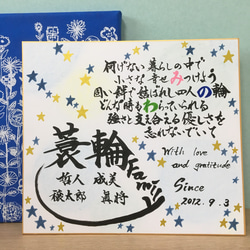 何げない暮らしの中で
小さな幸せみつけよう
固い絆で結ばれし四人の輪
どんな時もわらっていられる
強さと支え合える優しさを
忘れないでいて
With love
and gratitude
Since
2012. 9. 3
蓑輪family
哲人 成美
穣太郎 真将